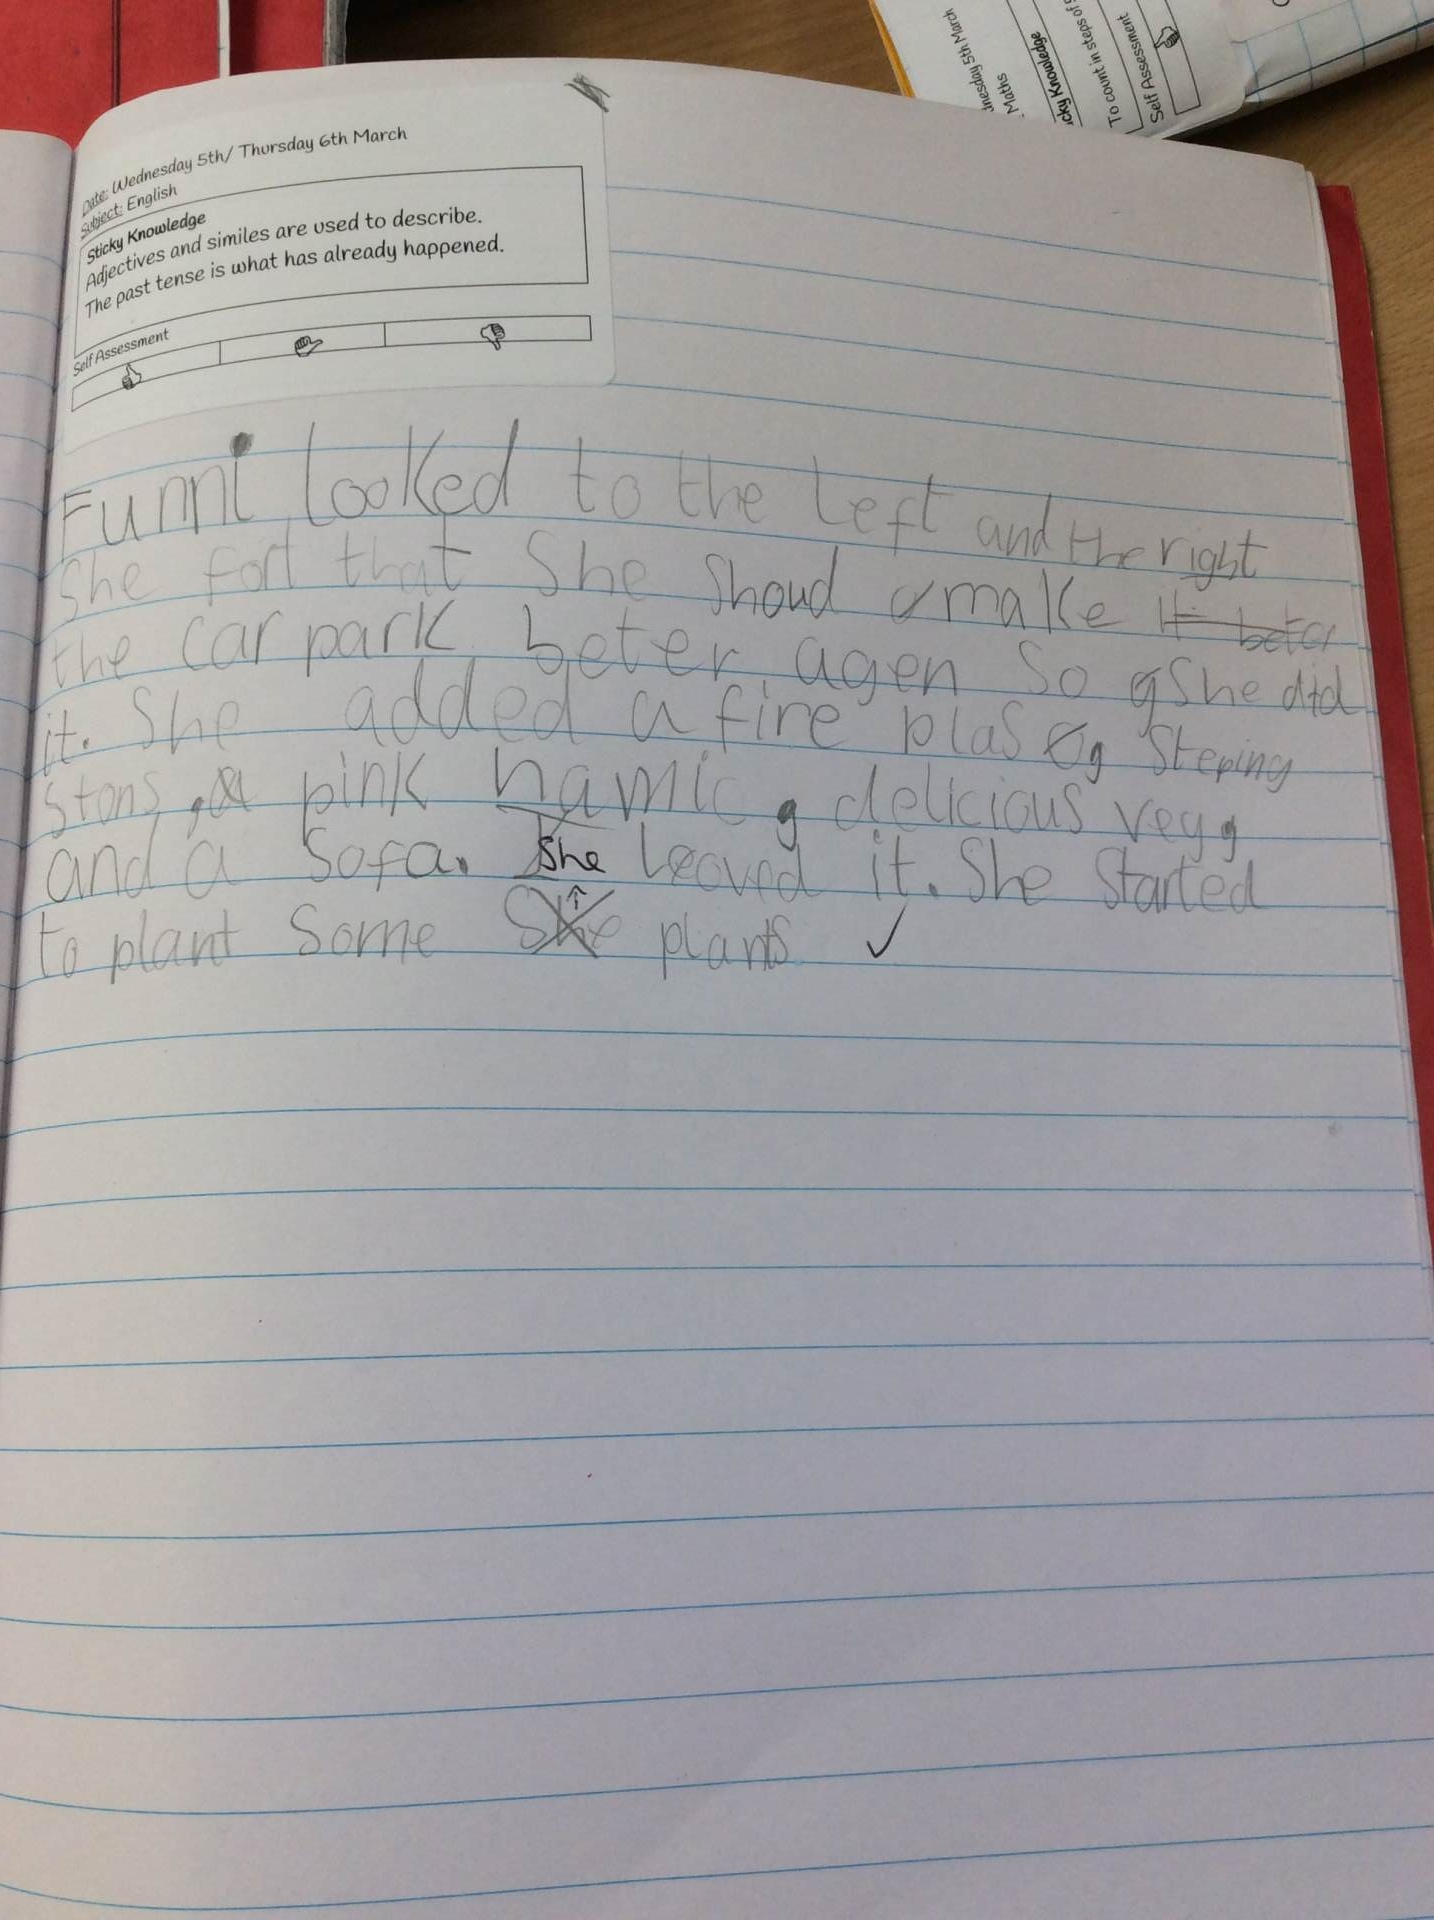 Date: Wednesday 5th/ Thursday 6th March
Subject: English
Sticky Knowledge
Adjectives and similes are used to describe.
The past tense is what has already happened.
Self Assessment
Funni looked to the left and the right
She fort that She Shoud make it beter
the car park beter agen So She did
it. She added a fire plas, Steping
Stons, pink hamic, delicious veg,
and a Sofa. She leaved it. She Started
to plant Some She plants
5th March
Maths
Knowledge
To count in steps of
Self Assessment